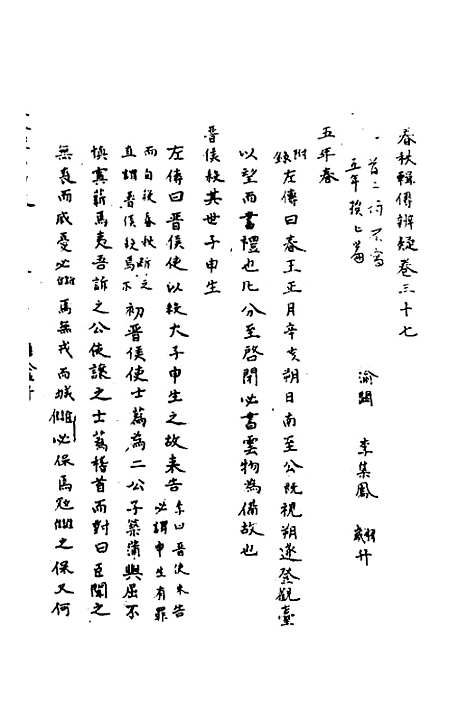 春秋輯傳辨疑卷三十七
一首二行不寫
五年後七篇
渝關 李集鳳 翽升
五年春
附錄左傳曰春王正月辛亥朔日南至公既視朔遂登觀臺
以望而書禮也凡分至啓閉必書雲物為備故也
晉侯殺其世子申生
左傳曰晉侯使以殺大子申生之故來告
李曰晉使來告必謂申生有罪
而句從春秋斷之
直謂晉侯殺焉不
初晉侯使士蔿為二公子築蒲與屈不
慎寘薪焉夷吾訴之公使讓之士蔿稽首而對曰臣聞之
無喪而慼憂必讎焉無戎而城讎必保焉冦讎之保又何